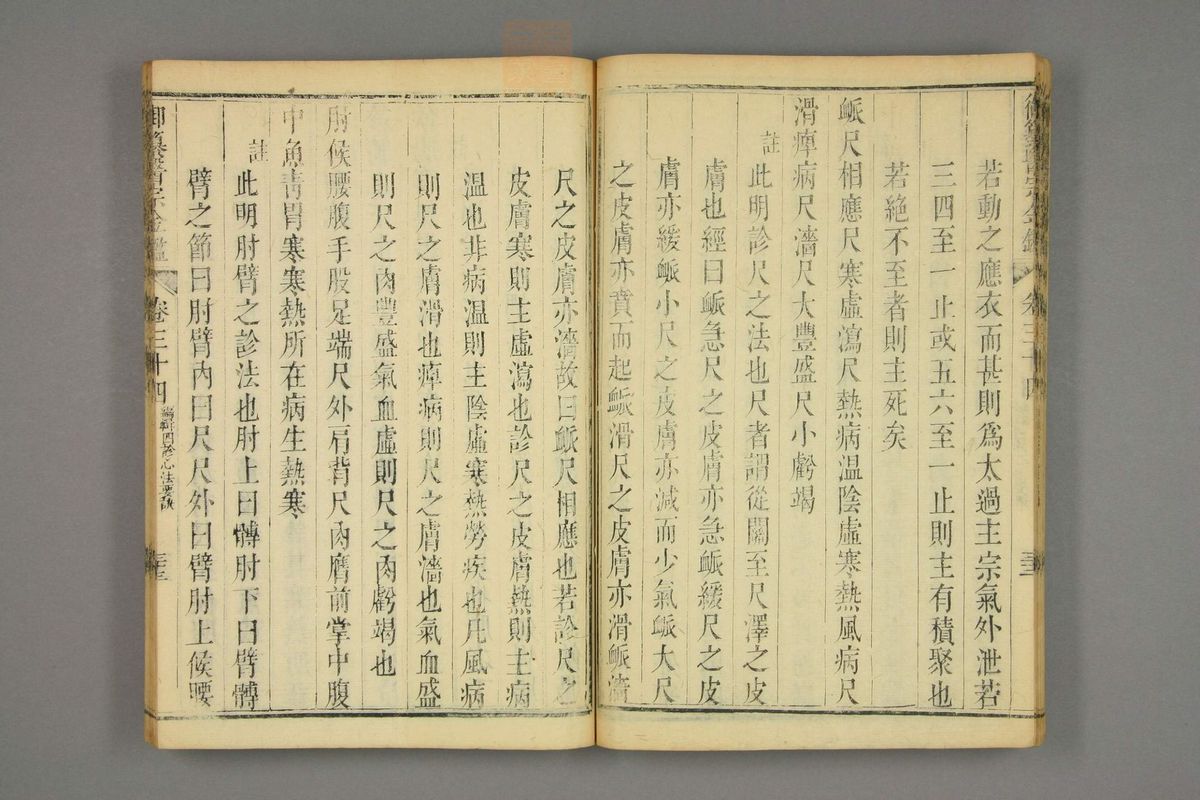 若動之應衣而甚則爲太過主宗氣外泄若
三四至一止或五六至一止則主有積聚也
若絶不至者則主死矣
脈尺相應尺寒虛瀉尺熱病温陰虛寒熱風病尺
滑痺病尺濇尺大豐盛尺小虧竭
註
此明診尺之法也尺者謂從關至尺澤之皮
膚也經曰脈急尺之皮膚亦急脈緩尺之皮
膚亦緩脈小尺之皮膚亦減而少氣脈大尺
之皮膚亦賁而起脈滑尺之皮膚亦滑脈濇
尺之皮膚亦濇故曰脈尺相應也若診尺之
皮膚寒則主虛瀉也診尺之皮膚熱則主病
温也非病温則主陰虛寒熱勞疾也凡風病
則尺之膚滑也痺病則尺之膚濇也氣血盛
則尺之肉豐盛氣血虛則尺之肉虧竭也
肘候腰腹手股足端尺外肩背尺内膺前掌中腹
中魚青胃寒寒熱所在病生熱寒
註
此明肘臂之診法也肘上曰髆肘下曰臂髆
臂之節曰肘臂内曰尺尺外曰臂肘上候腰
御纂醫宗金鑑
卷三十四
編輯四診心法要訣